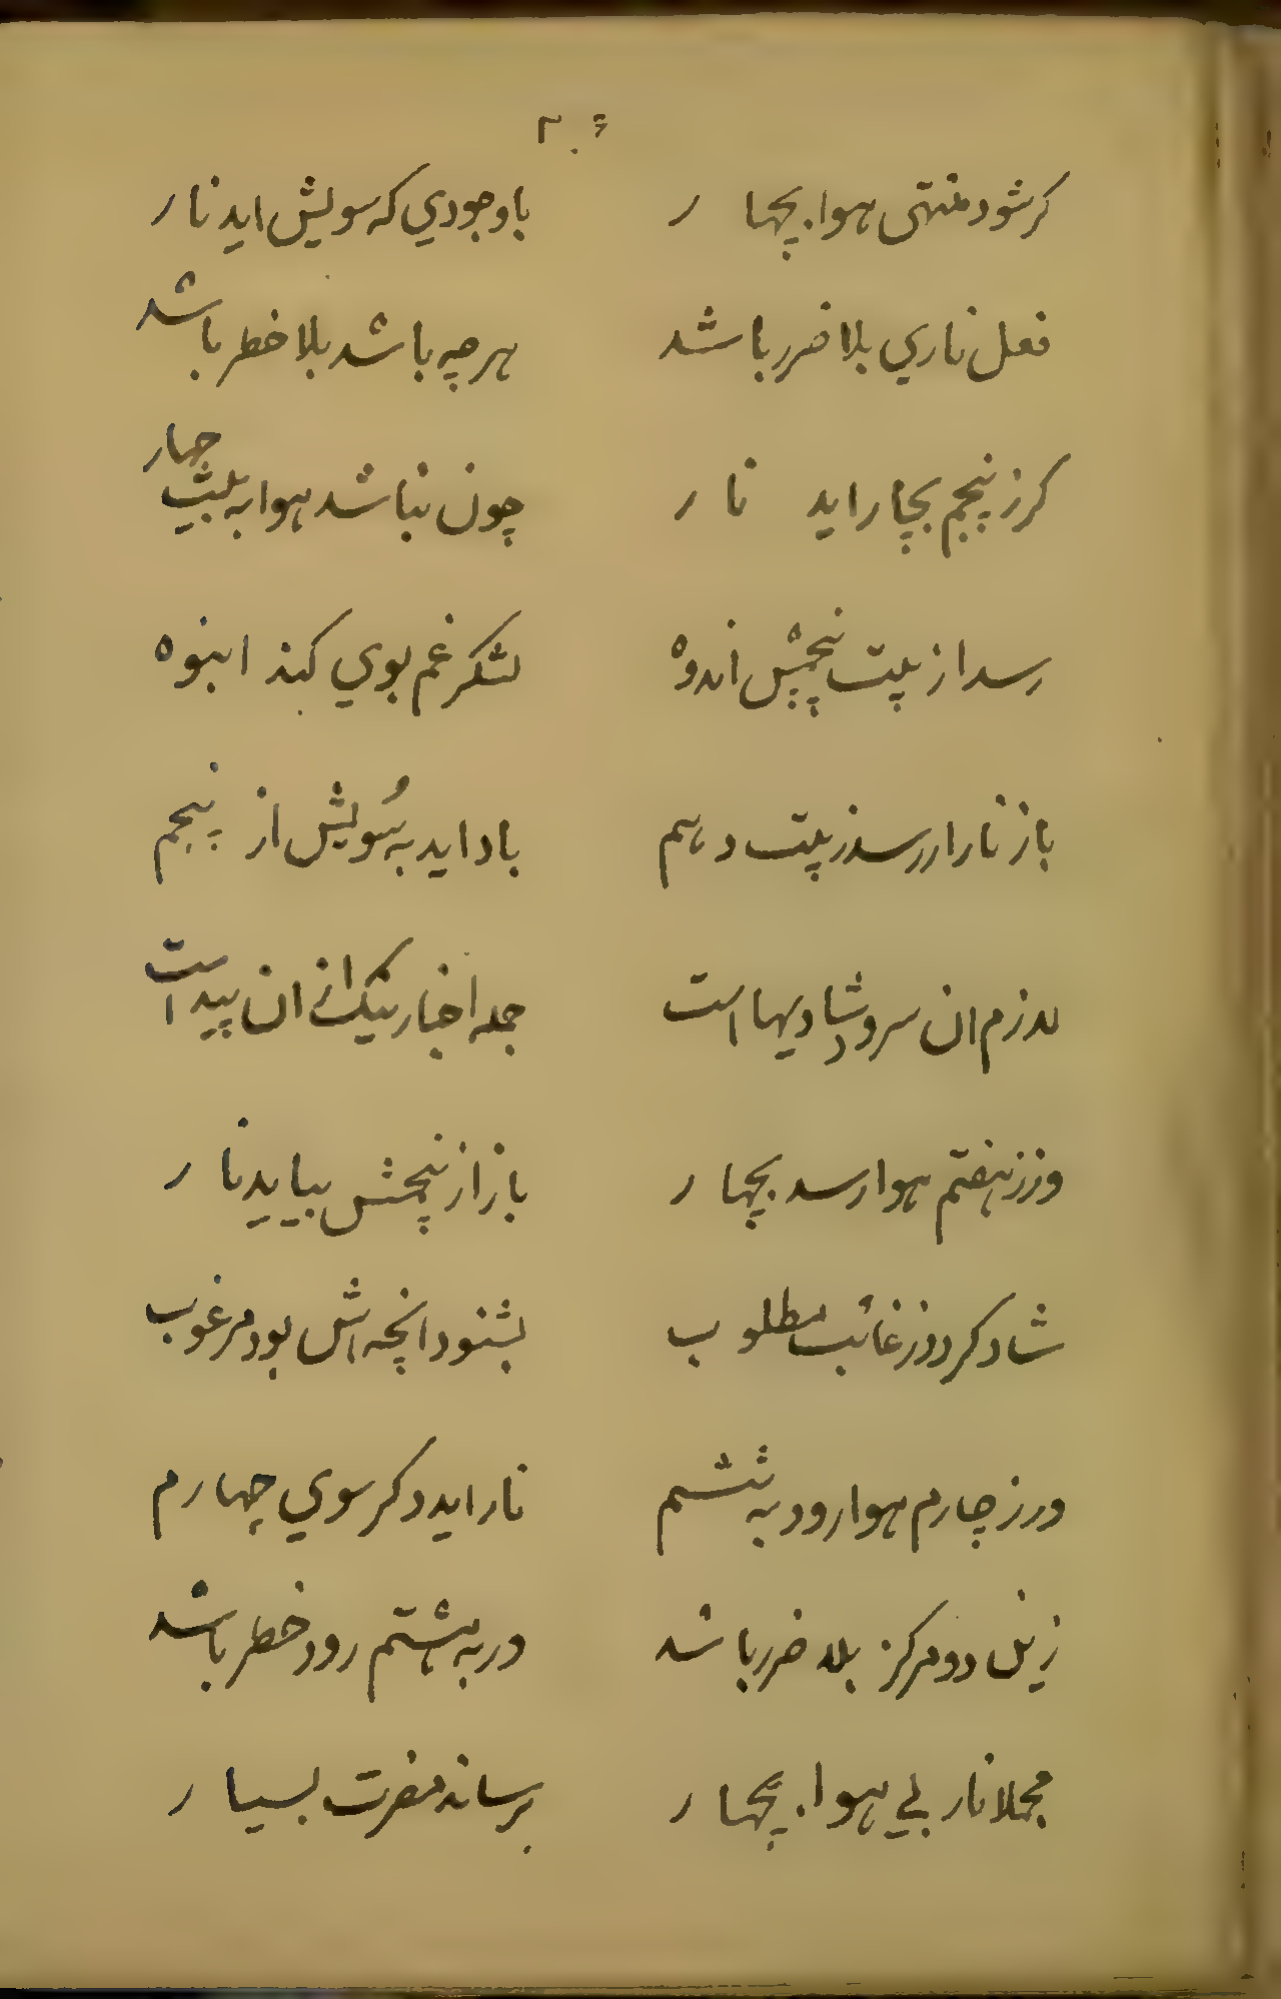 ۲۰۶
کر شود منتهی هوا بچهار باوجودي که سویش اید نار
فعل ناري بلا ضرر باشد هرچه باشد بلا خطر باشد
کر ز پنجم بچار اید نار چون نباشد هوا به بیت چهار
رسد از بیت پنجمش اندوه لشکر غم بوي کند انبوه
باز نار ار رسد ز بیت دهم باد اید به سُویش از پنجم
لازم ان سرو شادیها است جمله اخبار نیک از ان پیداست
ور ز هفتم هوا رسد بچهار باز از پنجمش بیاید نار
شاد کردد ز غائب مطلوب بشنود انچه اش بود مرغوب
ور ز چارم هوا رود به ششم نار اید دکر سوي چهارم
زین دو مرکز بلا ضرر باشد ور به هشتم رود خطر باشد
مجملا نار بي هوا بچهار برساند مضرت بسیار